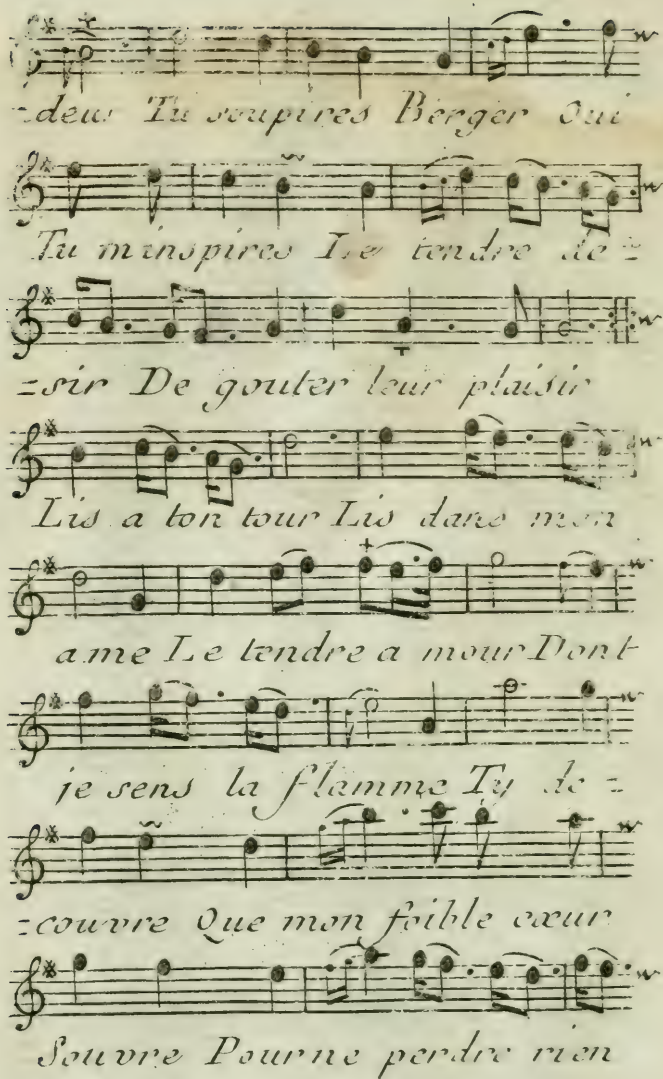 =deur Tu soupires Berger Oui
Tu m'inspires Le tendre de=
=sir De gouter leur plaisir
Lis a ton tour Lis dans mon
ame Le tendre a mour Dont
je sens la flamme Ty de=
=couvre Que mon foible cœur
Souvre Pour ne perdre rien